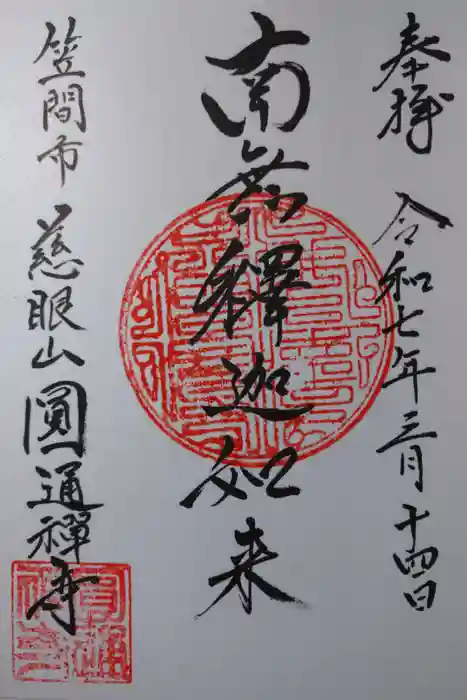 奉拝 令和七年三月十四日
南無釋迦如来
笠間市 慈眼山 圓通禅寺